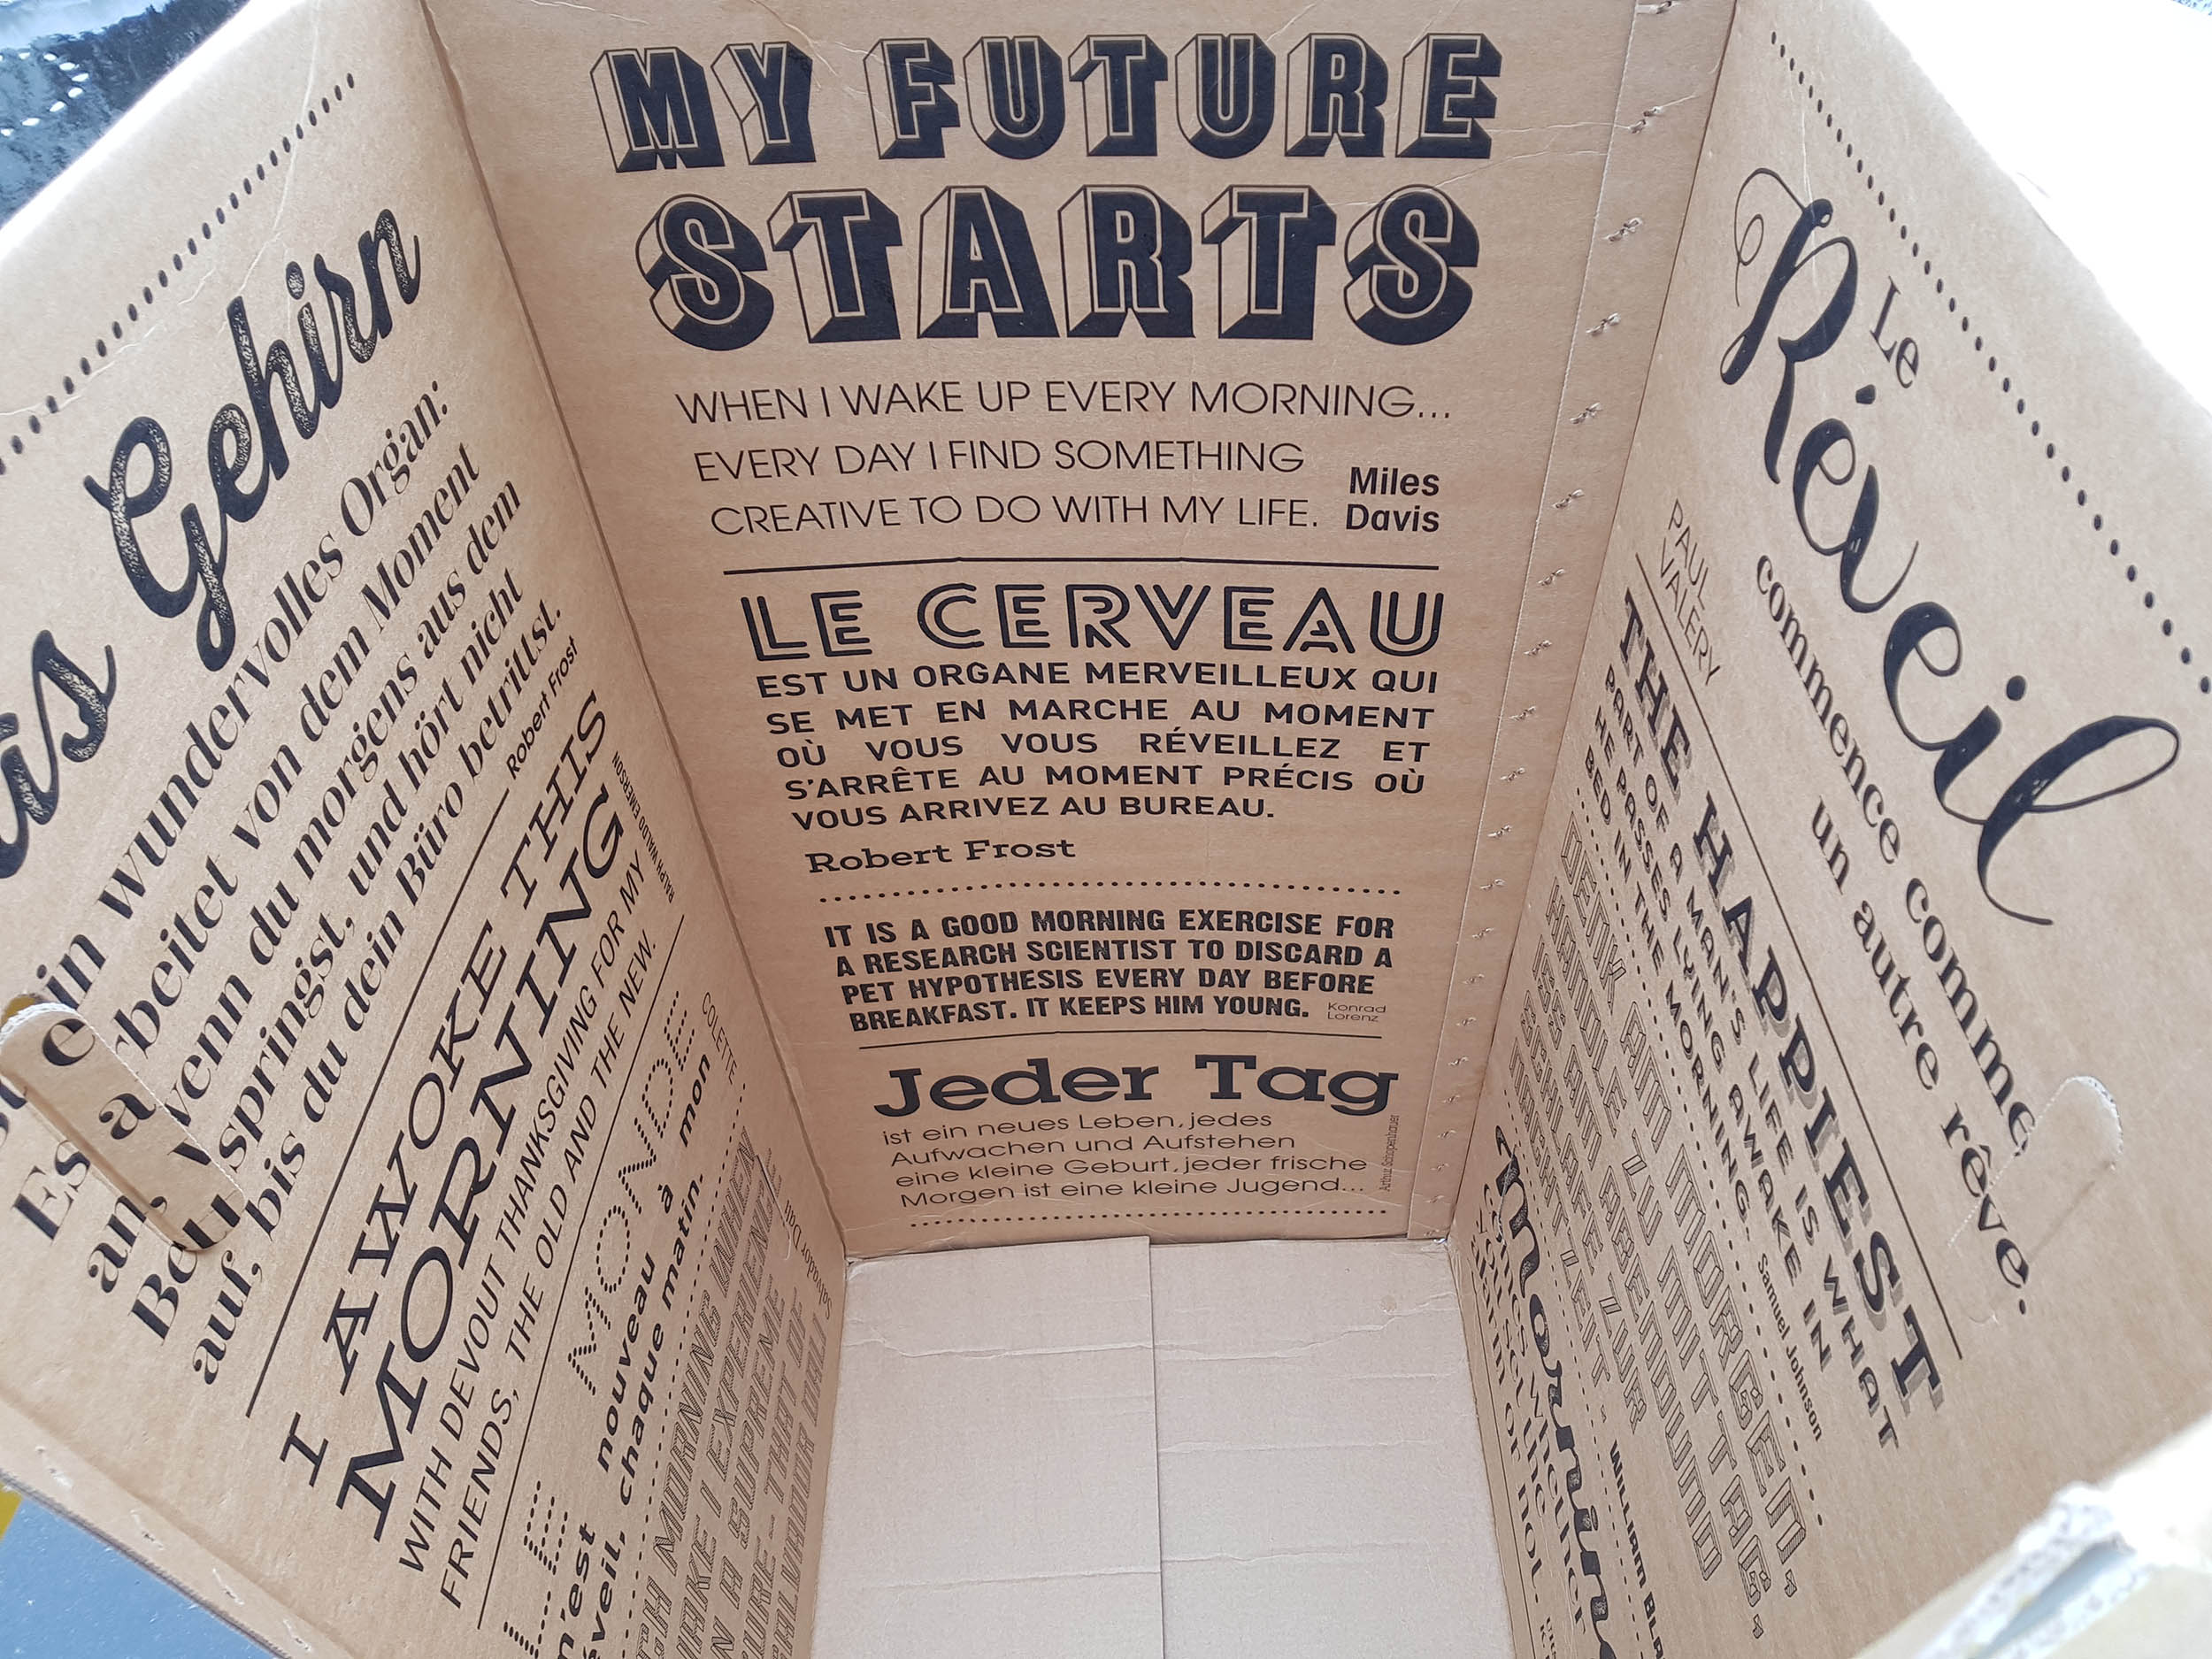 as Gehirn
ein wundervolles Organ:
Es arbeitet von dem Moment
an, wenn du morgens aus dem
springst, und hört nicht
auf, bis du dein Büro betrittst.
Robert Frost
I AWOKE THIS
MORNING
RALPH WALDO EMERSON
WITH DEVOUT THANKSGIVING FOR MY
FRIENDS, THE OLD AND THE NEW.
LE MONDE
COLETTE
m'est nouveau à mon
éveil, chaque matin.
MORNING WHEN
AWAKE I EXPERIENCE
A SUPREME
THAT OF
SALVADOR DALI
Salvador Dali
MY FUTURE
STARTS
WHEN I WAKE UP EVERY MORNING...
EVERY DAY I FIND SOMETHING
CREATIVE TO DO WITH MY LIFE.
Miles
Davis
LE CERVEAU
EST UN ORGANE MERVEILLEUX QUI
SE MET EN MARCHE AU MOMENT
OÙ VOUS VOUS RÉVEILLEZ ET
S'ARRÊTE AU MOMENT PRÉCIS OÙ
VOUS ARRIVEZ AU BUREAU.
Robert Frost
IT IS A GOOD MORNING EXERCISE FOR
A RESEARCH SCIENTIST TO DISCARD A
PET HYPOTHESIS EVERY DAY BEFORE
BREAKFAST. IT KEEPS HIM YOUNG.
Konrad
Lorenz
Jeder Tag
ist ein neues Leben, jedes
Aufwachen und Aufstehen
eine kleine Geburt, jeder frische
Morgen ist eine kleine Jugend...
Arthur Schopenhauer
Le
Réveil
commence comme
un autre rêve.
PAUL
VALERY
THE HAPPIEST
PART OF A MAN'S LIFE IS WHAT
HE PASSES LYING AWAKE IN
BED IN THE MORNING.
Samuel Johnson
DENK AM MORGEN,
HANDLE ZU MITTAG,
ISS AM ABEND UND
SCHLAFE ZUR
NACHTZEIT.
WILLIAM BLA
morning
comes whether
you set the
alarm or not.